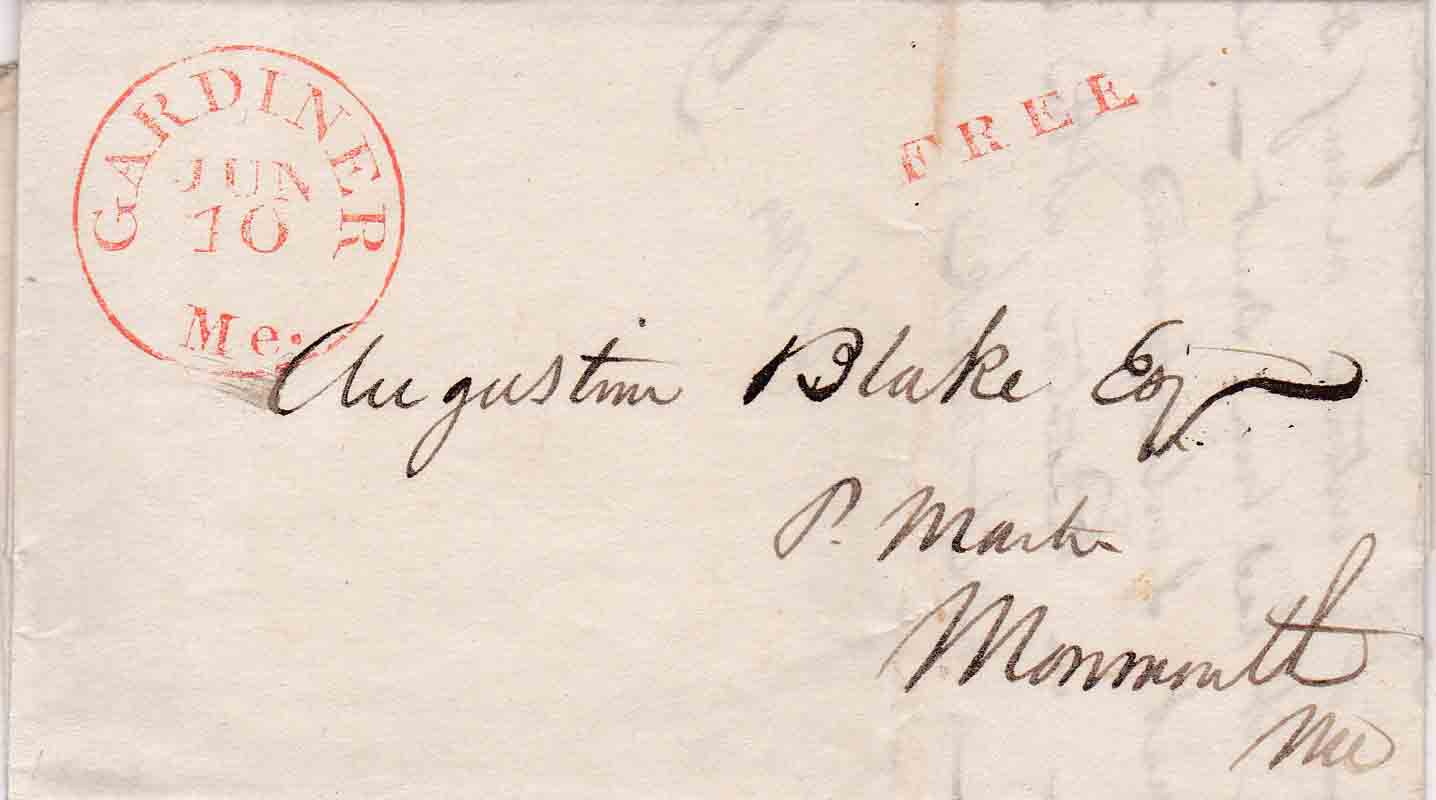 GARDINER
JUN
10
Me.
FREE
Augustin Blake Esq
P. Master
Monmouth
Me